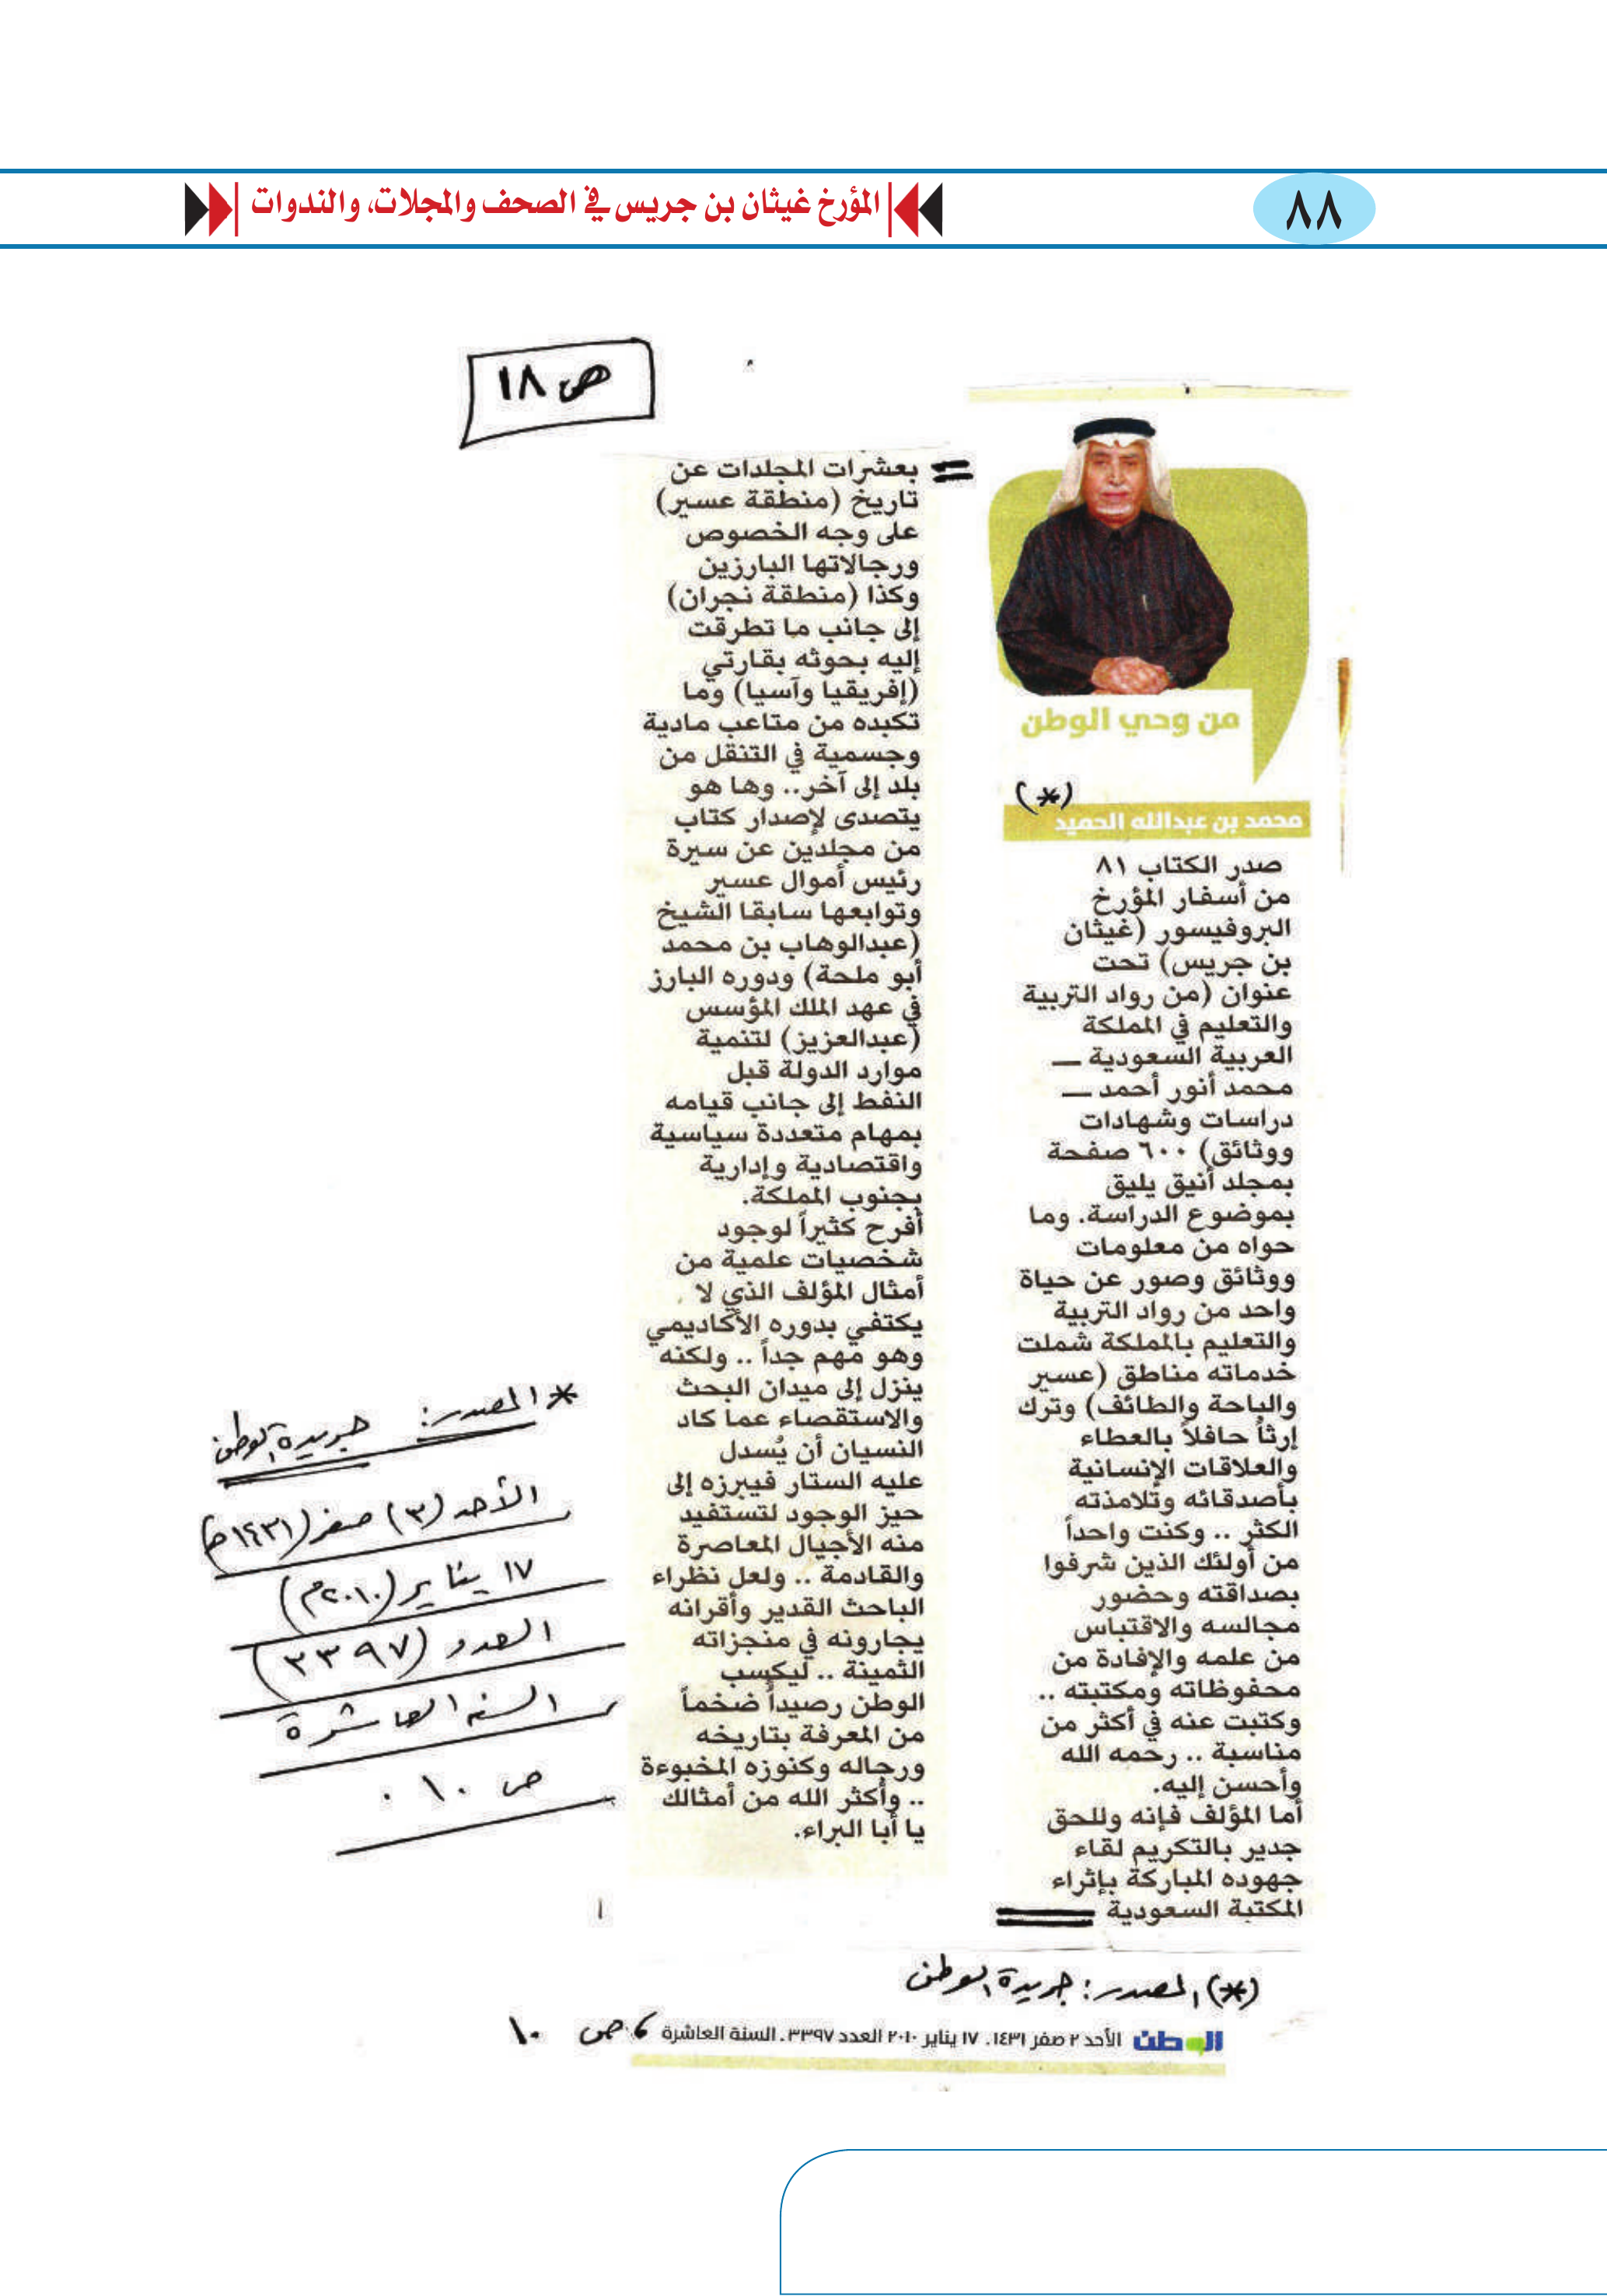 ٨٨
المؤرخ غيثان بن جريس في الصحف والمجلات، والندوات
ص ١٨
من وحي الوطن
(*)
محمد بن عبدالله الحميد
صدر الكتاب ٨١
من أسفار المؤرخ
البروفيسور (غيثان
بن جريس) تحت
عنوان (من رواد التربية
والتعليم في المملكة
العربية السعودية ــ
محمد أنور أحمد ــ
دراسات وشهادات
ووثائق) ٦٠٠ صفحة
بمجلد أنيق يليق
بموضوع الدراسة. وما
حواه من معلومات
ووثائق وصور عن حياة
واحد من رواد التربية
والتعليم بالمملكة شملت
خدماته مناطق (عسير
والباحة والطائف) وترك
إرثاً حافلاً بالعطاء
والعلاقات الإنسانية
بأصدقائه وتلامذته
الكثر .. وكنت واحداً
من أولئك الذين شرفوا
بصداقته وحضور
مجالسه والاقتباس
من علمه والإفادة من
محفوظاته ومكتبته ..
وكتبت عنه في أكثر من
مناسبة .. رحمه الله
وأحسن إليه.
أما المؤلف فإنه وللحق
جدير بالتكريم لقاء
جهوده المباركة بإثراء
المكتبة السعودية
بعشرات المجلدات عن
تاريخ (منطقة عسير)
على وجه الخصوص
ورجالاتها البارزين
وكذا (منطقة نجران)
إلى جانب ما تطرقت
إليه بحوثه بقارتي
(إفريقيا وآسيا) وما
تكبده من متاعب مادية
وجسمية في التنقل من
بلد إلى آخر.. وها هو
يتصدى لإصدار كتاب
من مجلدين عن سيرة
رئيس أموال عسير
وتوابعها سابقا الشيخ
(عبدالوهاب بن محمد
أبو ملحة) ودوره البارز
في عهد الملك المؤسس
(عبدالعزيز) لتنمية
موارد الدولة قبل
النفط إلى جانب قيامه
بمهام متعددة سياسية
واقتصادية وإدارية
بجنوب المملكة.
أفرح كثيراً لوجود
شخصيات علمية من
أمثال المؤلف الذي لا
يكتفي بدوره الأكاديمي
وهو مهم جداً .. ولكنه
ينزل إلى ميدان البحث
والاستقصاء عما كاد
النسيان أن يُسدل
عليه الستار فيبرزه إلى
حيز الوجود لتستفيد
منه الأجيال المعاصرة
والقادمة .. ولعل نظراء
الباحث القدير وأقرانه
يجارونه في منجزاته
الثمينة .. ليكسب
الوطن رصيداً ضخماً
من المعرفة بتاريخه
ورجاله وكنوزه المخبوءة
.. وأكثر الله من أمثالك
يا أبا البراء.
* المصدر: جريدة الوطن
الأحد (٣) صفر (١٤٣١هـ)
١٧ يناير (٢٠١٠م)
العدد (٣٣٩٧)
السنة العاشرة
ص ١٠ .
(*) المصدر: جريدة الوطن
الوطن الأحد ٢ صفر ١٤٣١، ١٧ يناير ٢٠١٠ العدد ٣٣٩٧، السنة العاشرة ، ص ١٠